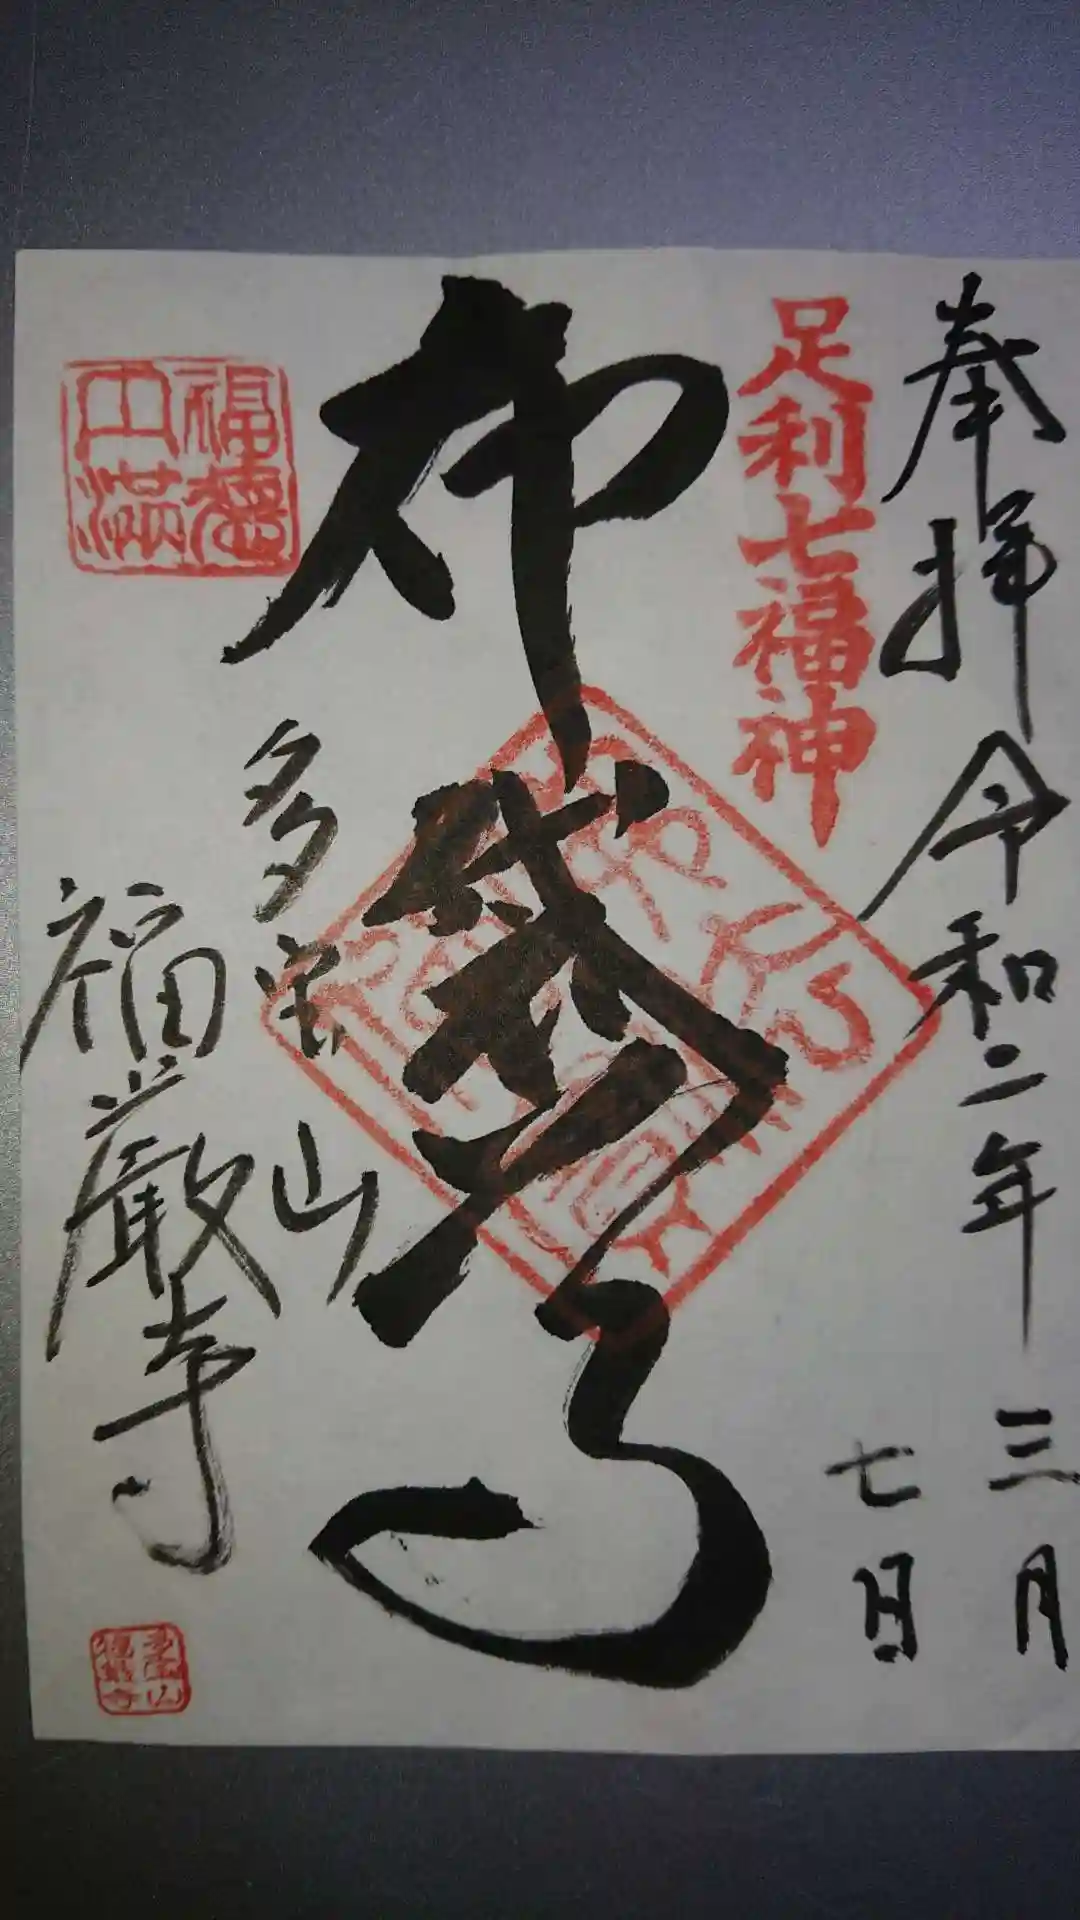 奉拝 令和二年三月
七日
足利七福神
布袋尊
多宝山
福厳寺
福徳
円満
多宝山
福厳寺